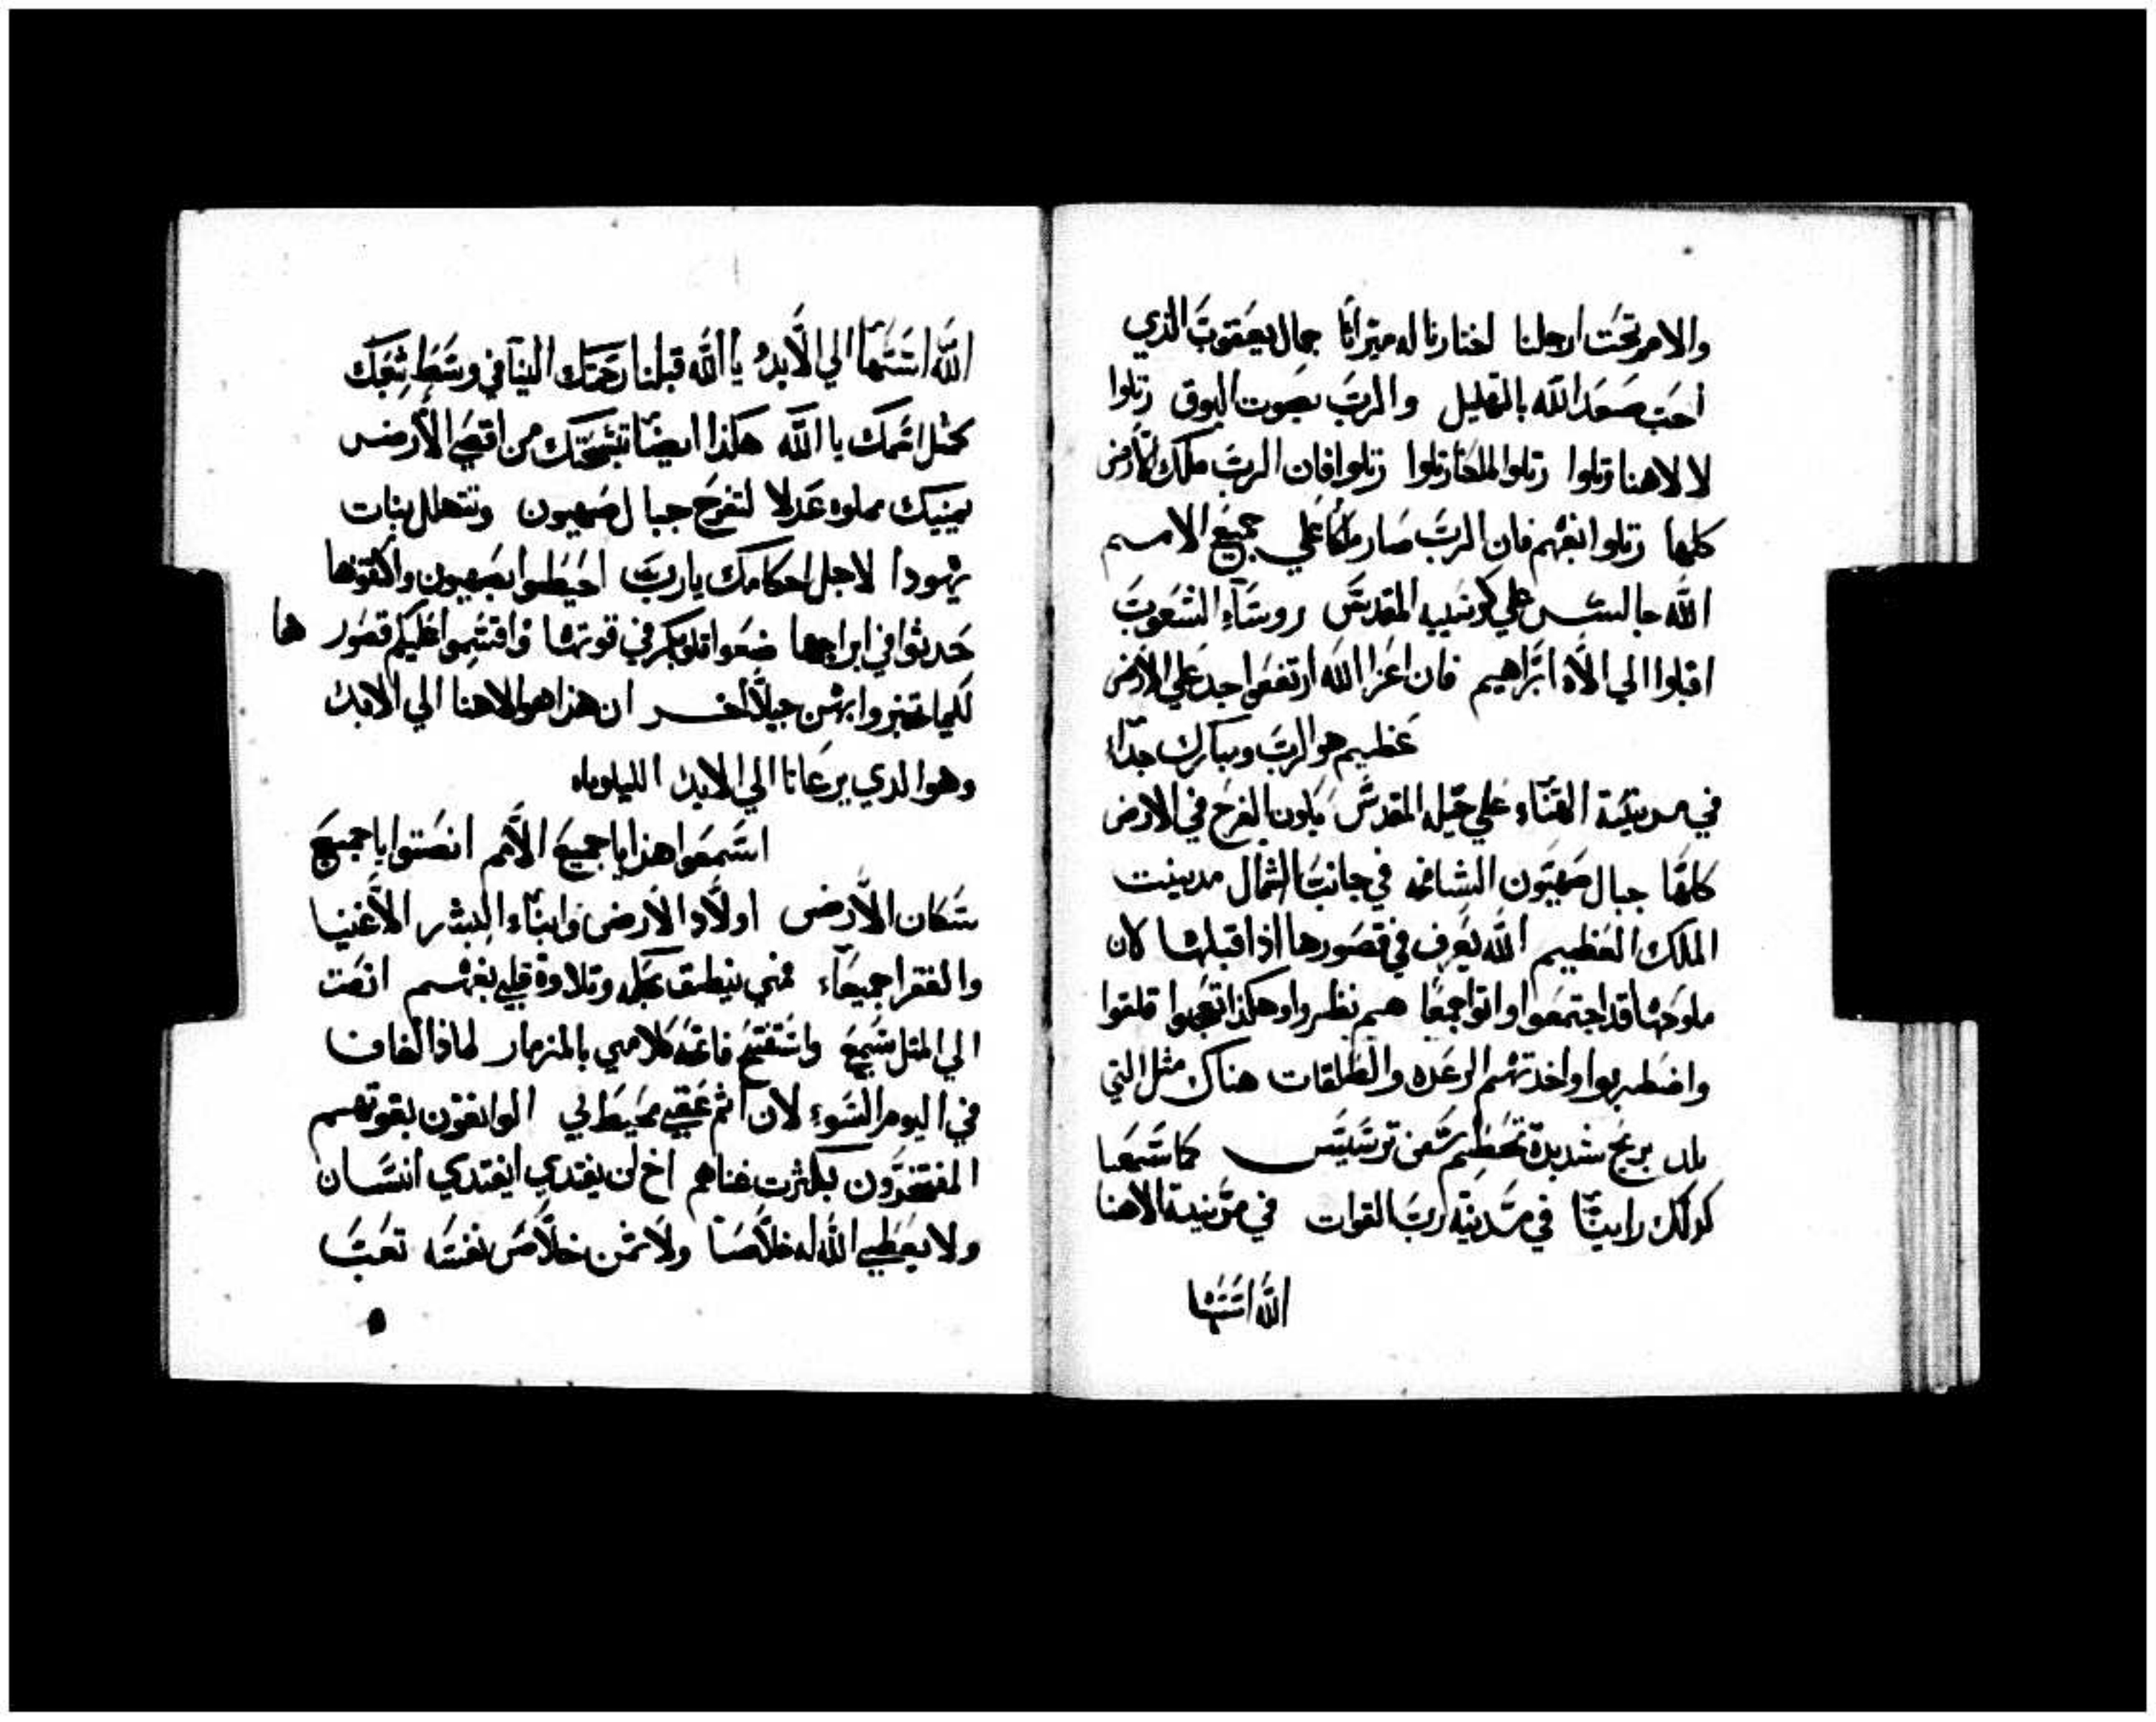 والامم تحت ارجلنا اختارنا له ميراثا جمال يعقوب الذي
احب صعد الله بالتهليل والرب بصوت البوق رتلوا
لالاهنا رتلوا رتلوا لملكنا رتلوا رتلوا فان الرب ملك الأرض
كلها رتلوا بفهم فان الرب صار ملكا علي جميع الامم
الله جالس علي كرسيه المقدس روساء الشعوب
اقبلوا الي الاه ابراهيم فان اعزا الله ارتفعوا جد علي الارض
عظيم هو الرب ومبارك جدا
في مدينة الاهنا علي جبله المقدس يكون الفرح في الارض
كلها جبال صهيون الشامخه في جانب الشمال مدينت
الملك العظيم الله يعرف في قصورها اذا قبلها لان
ملوكها قد اجتمعوا واتوا جميعا هم نظروا وهكذا تعجبوا قلقوا
واضطربوا واخدتهم الرعده والطلقات هناك مثل التي
تلد بريح شديدة تحطم سفن ترسيس كما سمعنا
كدلك راينا في مدينة رب القوات في مدينة الاهنا
الله اسسها
الله اسسها الي الابد يا الله قبلنا رحمتك الينا في وسط شعبك
كمثل اسمك يا الله هكذا ايضا تسبحتك من اقصي الأرض
يمينك مملوه عدلا لتفرح جبال صهيون وتتهلل بنات
يهودا لاجل احكامك يارب احيطوا بصهيون واكتنفوها
حدثوا في ابراجها ضعوا قلوبكم في قوتها واقتسموا قصور ها
لكيما تخبروا بهن جيلا أخر ان هذا هو الاهنا الي الابد
وهو الدي يرعانا الي الابد الليلوياه
اسمعوا هذا يا جميع الأمم انصتوا يا جميع
سكان الأرض اولاد الأرض وابناء البشر الأغنيا
والفقرا جميعا فمي ينطق بحكمه وتلاوة قلبي بفهم انصت
الي المثل بسمعي واستفتح كلامي بالمزمار لماذا اخاف
في اليوم السوء لان أثم عقبي محيط بي الواثقون بقوتهم
المفتخرون بكثرت غناهم اخ لن يفتدي ايفتدي انسان
ولا يعطي الله له خلاصا ولا ثمن خلاص نفسه تعب